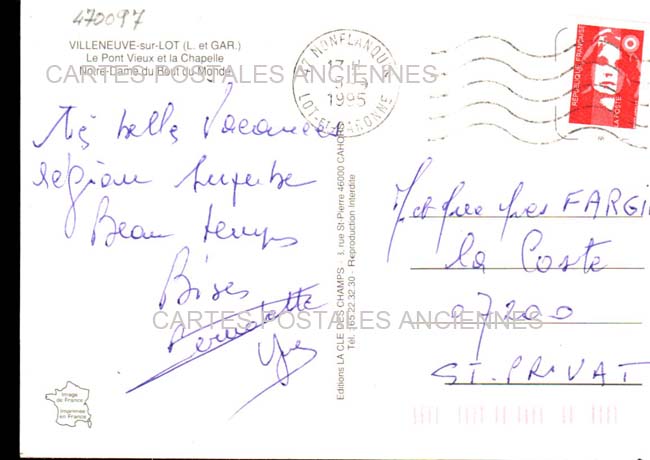 470097
VILLENEUVE-sur-LOT (L. et GAR.)
Le Pont Vieux et la Chapelle
Notre-Dame du Bout du Monde
CARTES POSTALES ANCIENNES
47 MONFLANQUIN
17 H
1995
LOT-ET-GARONNE
REPUBLIQUE FRANÇAISE
LA POSTE
Très belles Vacances
région superbe
Beau temps
Bises
Bernadette
Yves
Editions LA CLE DES CHAMPS - rue St-Pierre 46000 CAHORS
Tél. 65.22.32.30 - Reproduction Interdite
M et Mme FARGI
la Coste
07200
ST. PRIVAT
CARTES POSTALES ANCIENNES
Image
de France
Imprimée
en France